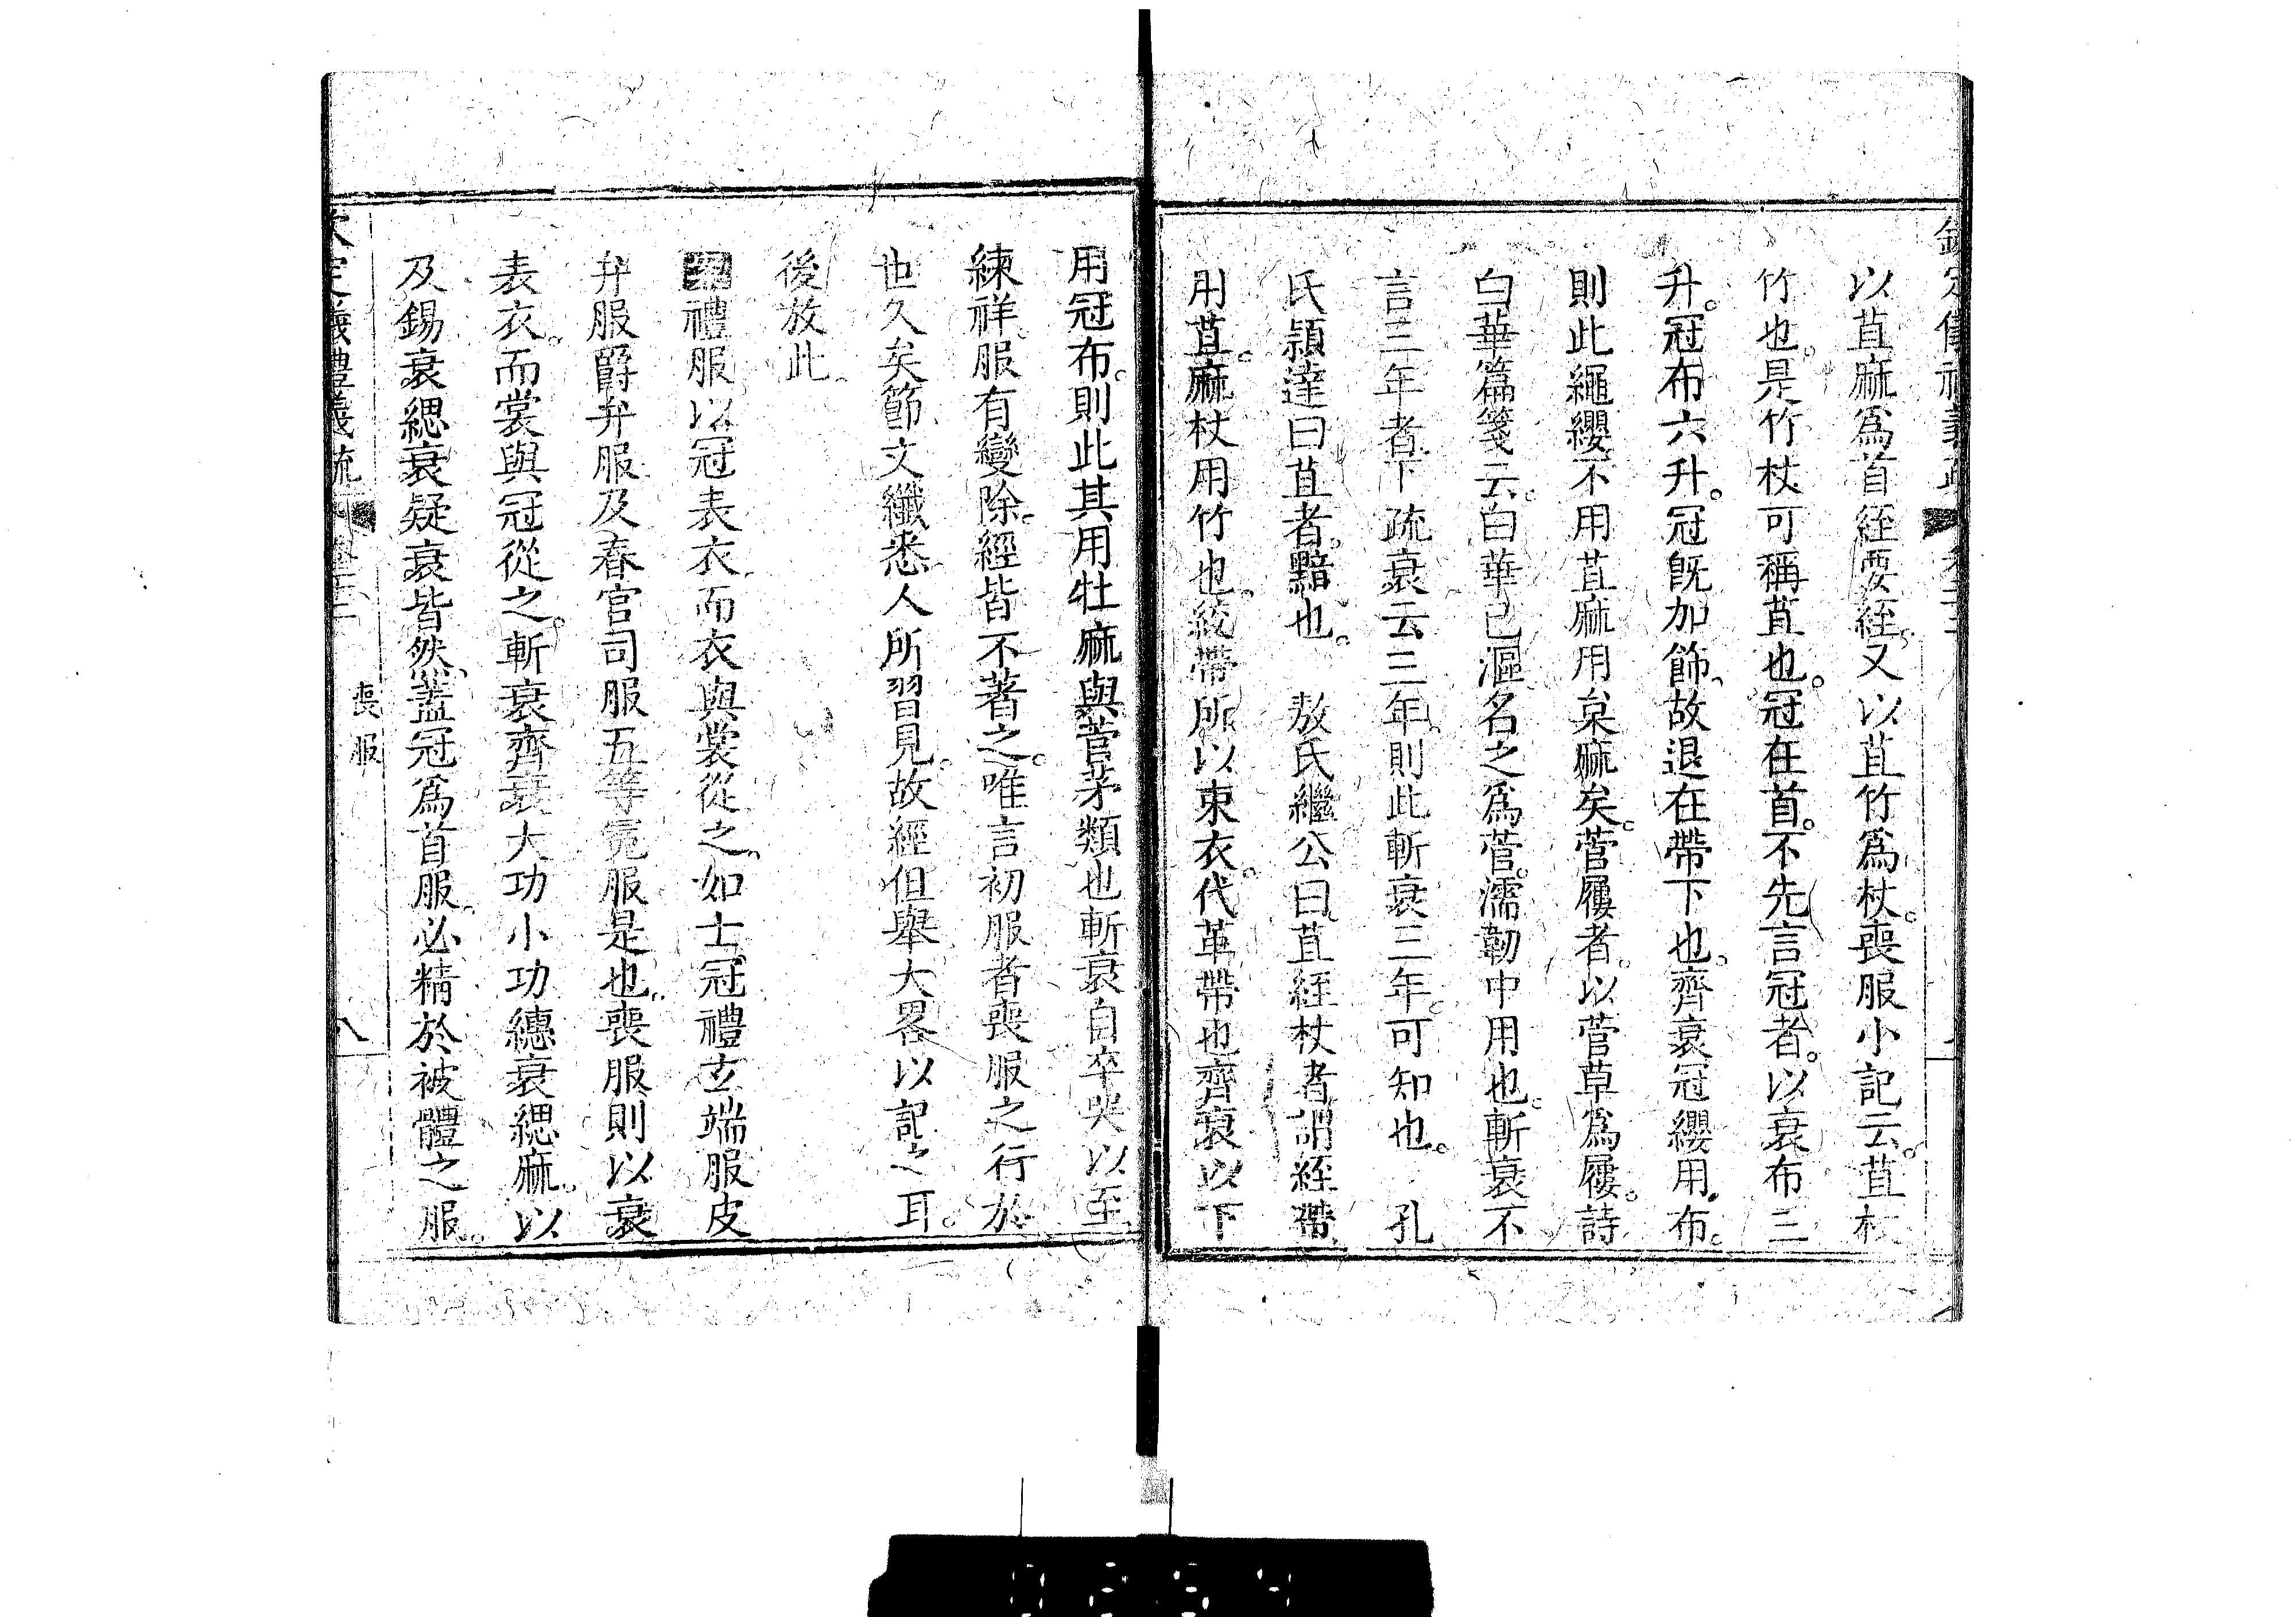 以苴麻爲首絰要絰。又以苴竹爲杖。喪服小記云。苴杖
竹也。是竹杖可稱苴也。冠在首。不先言冠者。以衰布三
升。冠布六升。冠既加飾。故退在帶下也。齊衰冠纓用布。
則此繩纓不用苴麻用枲麻矣。菅屨者。以菅草爲屨。詩
白華篇箋云。白華已漚名之爲菅。濡韌中用也。斬衰不
言三年者。下疏衰云三年。則此斬衰三年。可知也。 孔
氏頴達曰苴者。黯也。 敖氏繼公曰苴絰杖者謂絰帶
用苴。麻杖用竹也。絞帶所以束衣。代革帶也齊衰以下
用冠布。則此其用牡麻與菅茅類也斬衰自卒哭以至
練祥。服有變除。經皆不著之。唯言初服者喪服之行於
世久矣節文纖悉人所習見。故經但舉大畧以記之耳。
後放此。
禮服以冠表衣。而衣與裳從之。如士冠禮玄端服皮
弁服爵弁服及春官司服五等冕服是也。喪服則以衰
表衣。而裳與冠從之。斬衰齊衰大功小功繐衰緦麻。以
及錫衰緦衰疑衰皆然。蓋冠爲首服。必精於被體之服。
喪服
八